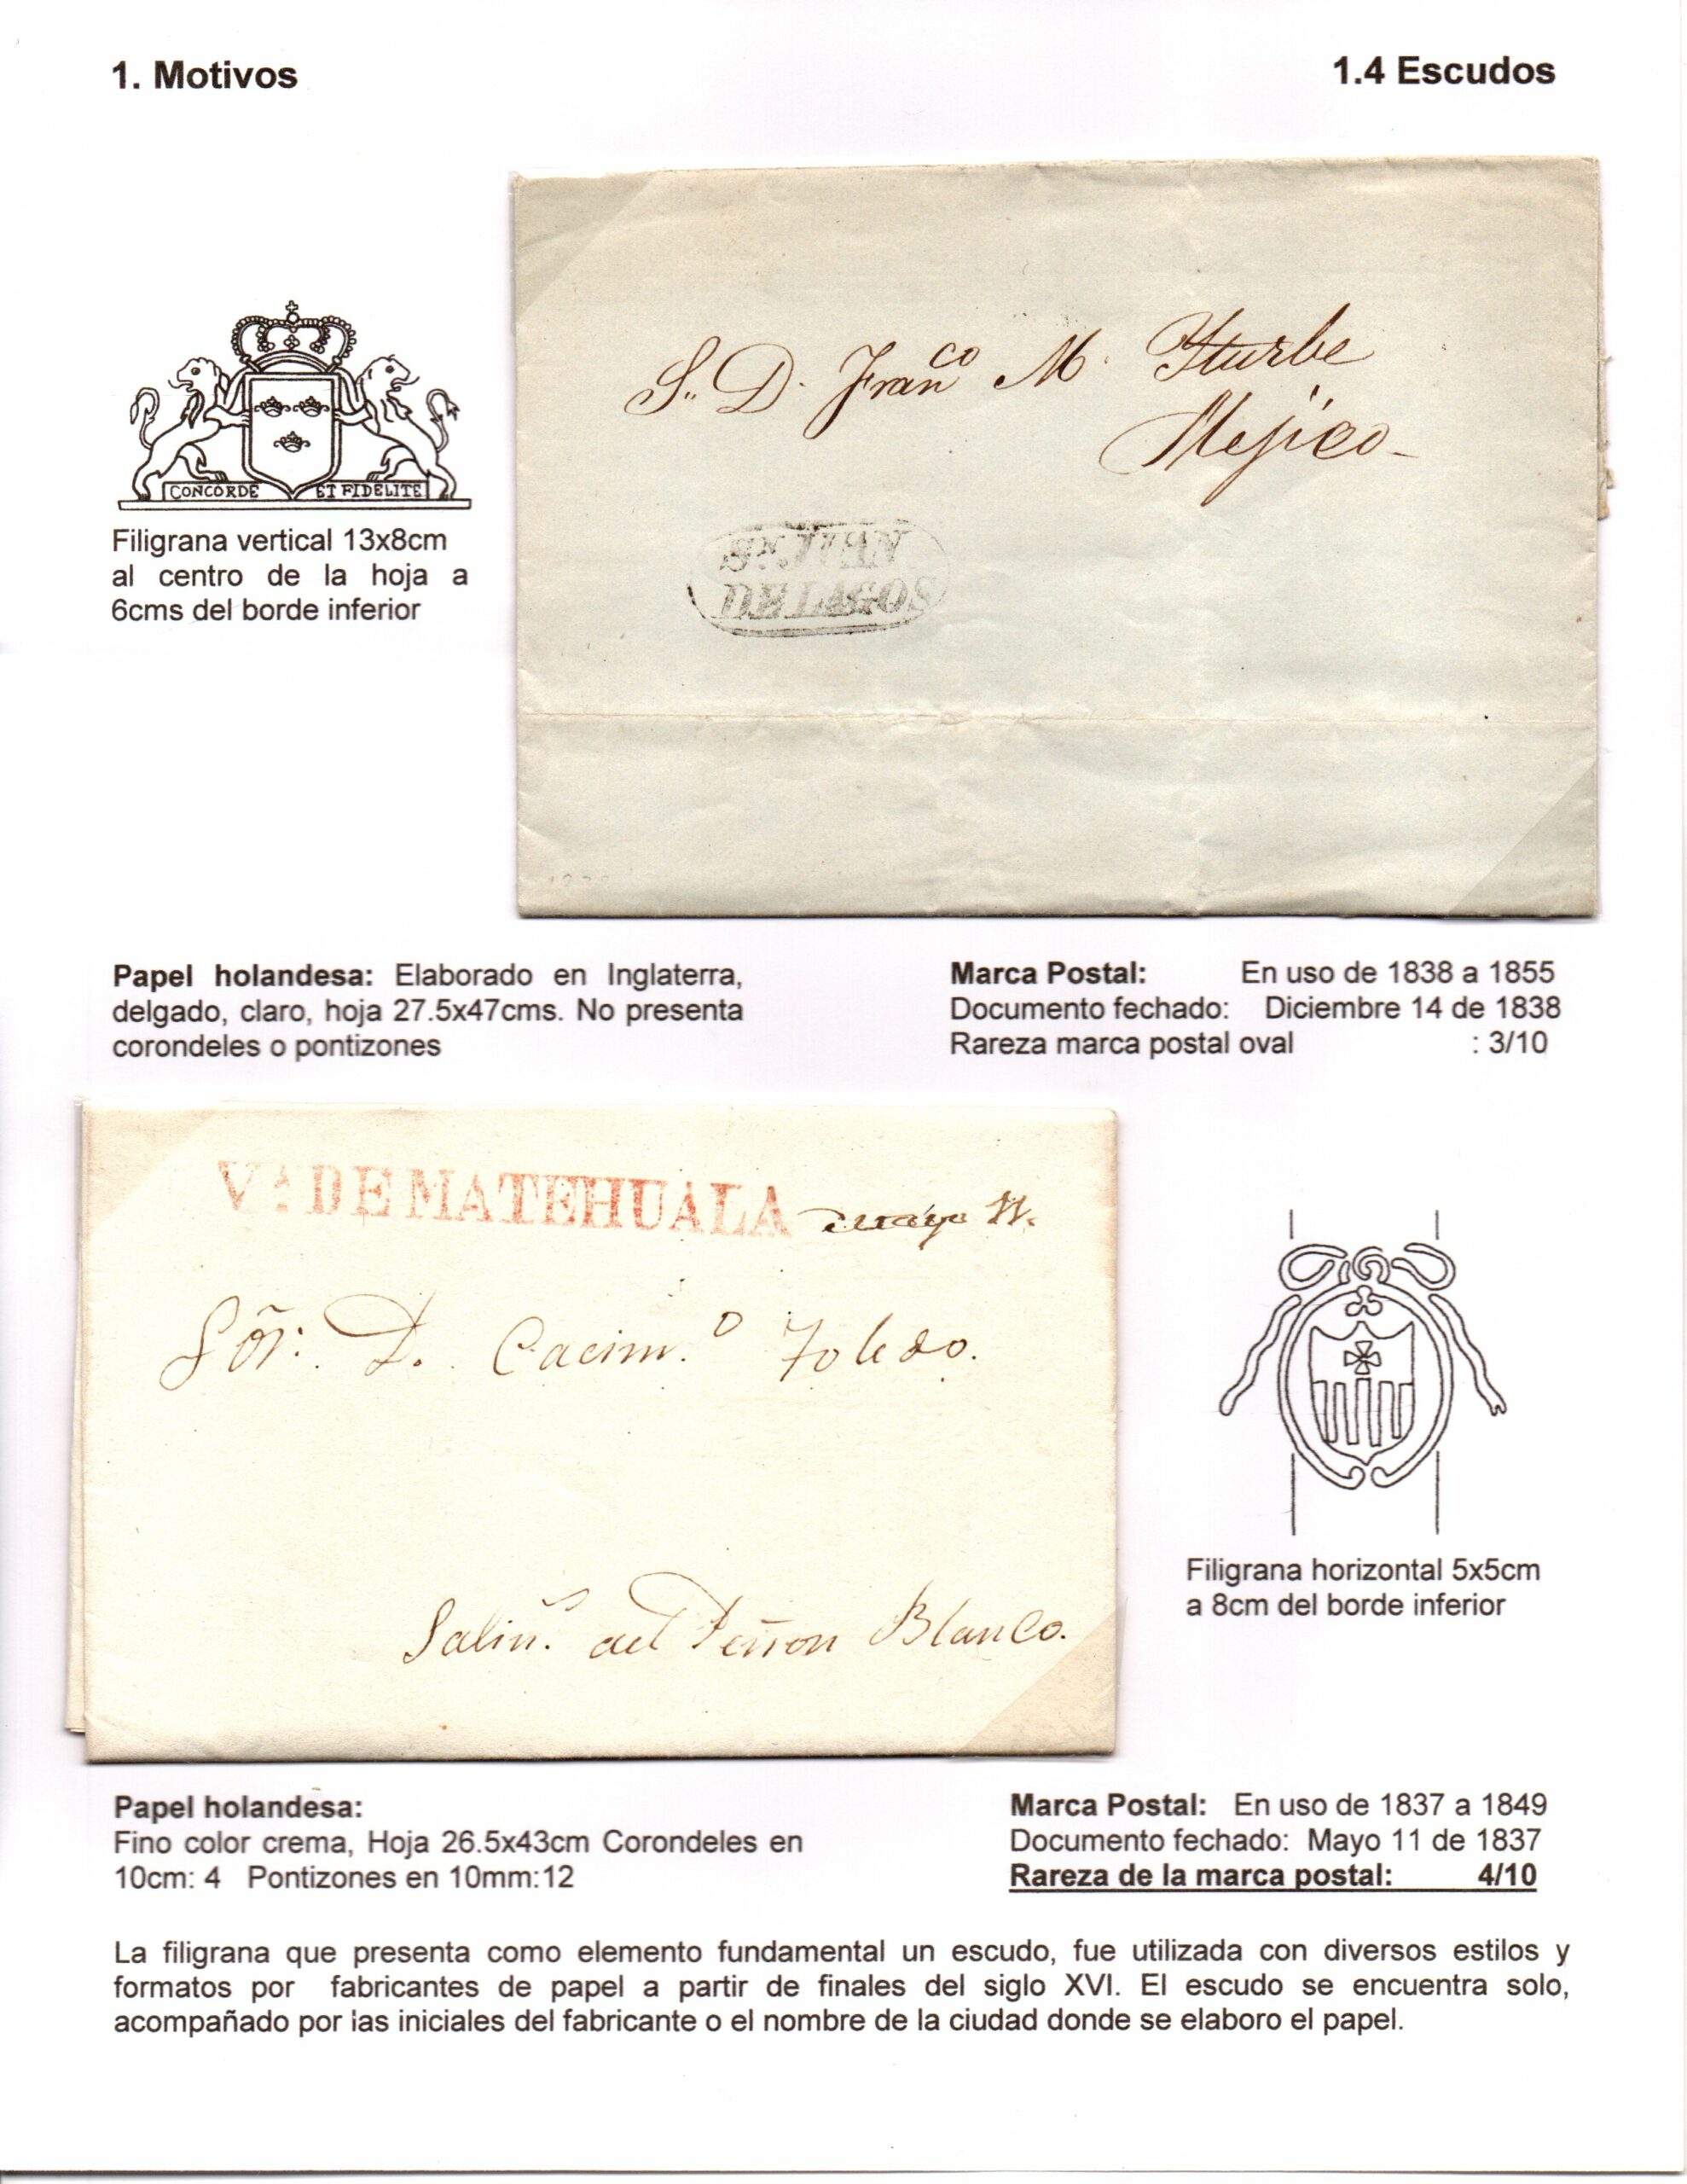 1. Motivos
1.4 Escudos
S.. D. Fran^co M. Yturbe
Mejico
S^n JUAN
DE LAGOS
CONCORDE ET FIDELITE
Filigrana vertical 13x8cm
al centro de la hoja a
6cms del borde inferior
Papel holandesa: Elaborado en Inglaterra,
delgado, claro, hoja 27.5x47cms. No presenta
corondeles o pontizones
Marca Postal: En uso de 1838 a 1855
Documento fechado: Diciembre 14 de 1838
Rareza marca postal oval : 3/10
V.ª DE MATEHUALA mayo 11.
Sõr: D. Cacim.º Toledo.
Salin.s del Peñon Blanco.
Filigrana horizontal 5x5cm
a 8cm del borde inferior
Papel holandesa:
Fino color crema, Hoja 26.5x43cm Corondeles en
10cm: 4 Pontizones en 10mm:12
Marca Postal: En uso de 1837 a 1849
Documento fechado: Mayo 11 de 1837
Rareza de la marca postal: 4/10
La filigrana que presenta como elemento fundamental un escudo, fue utilizada con diversos estilos y
formatos por fabricantes de papel a partir de finales del siglo XVI. El escudo se encuentra solo,
acompañado por las iniciales del fabricante o el nombre de la ciudad donde se elaboro el papel.